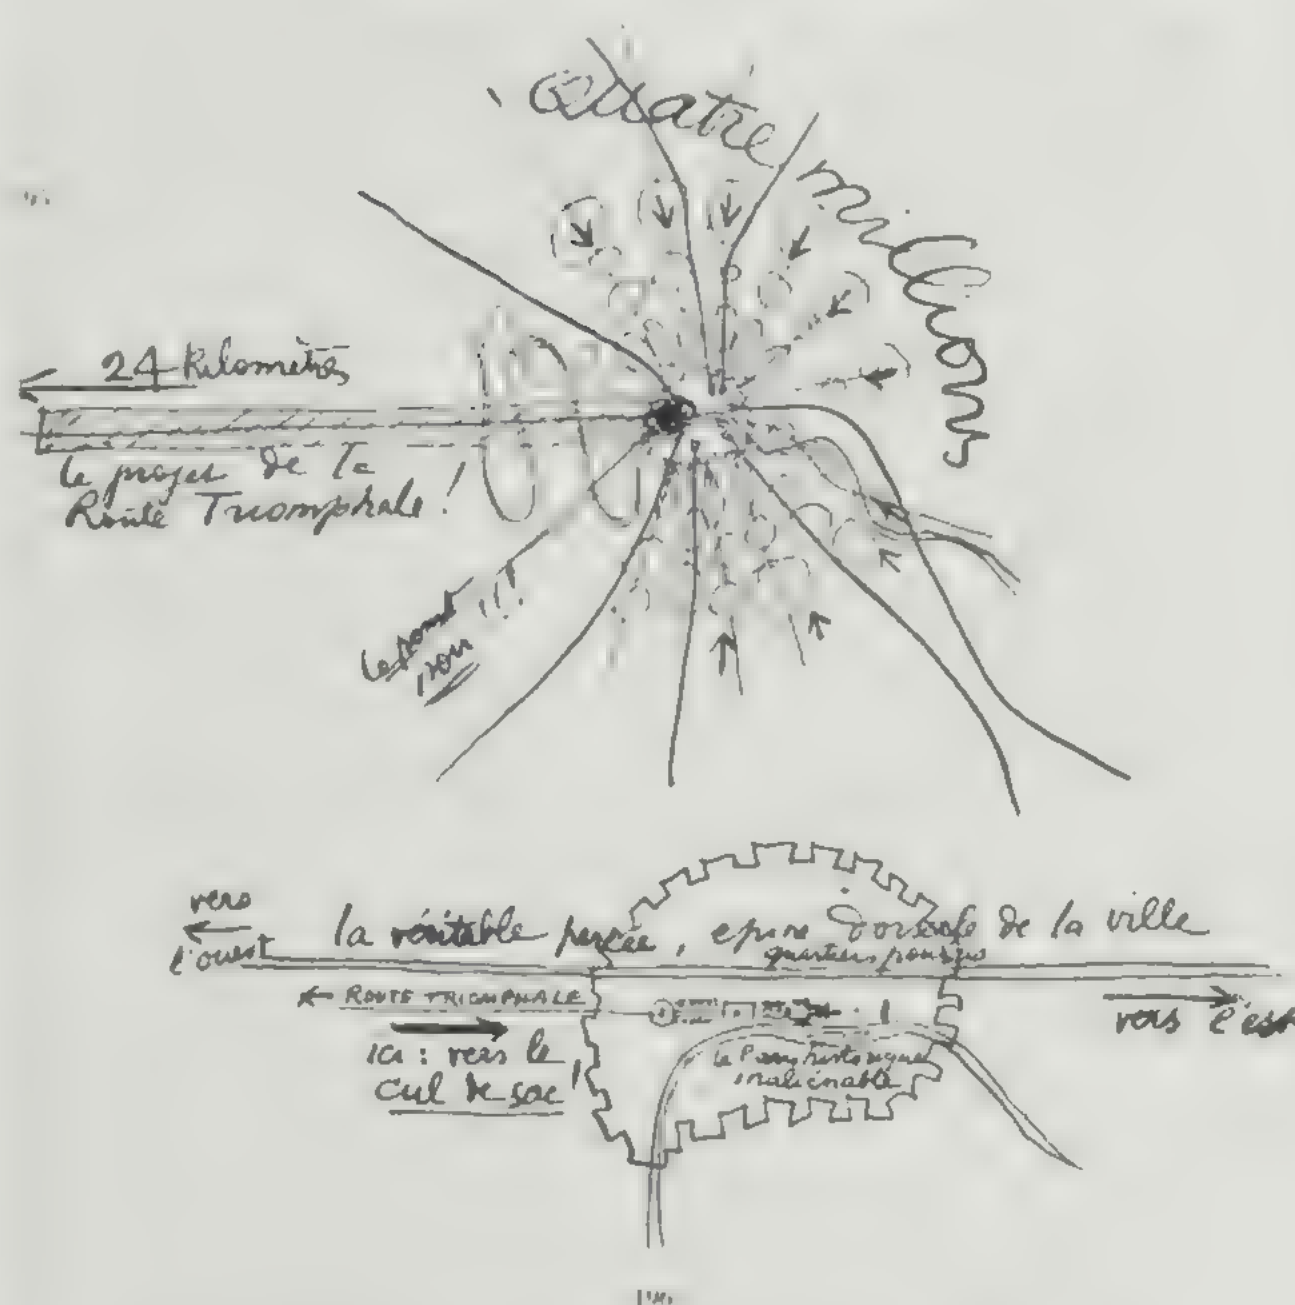 Quatre millions
24 Kilomètres
le projet de la
Route Triomphale !
le point !!!
noir
vers
l'ouest
la véritable percée, épine dorsale de la ville
quartiers pourris
← ROUTE TRIOMPHALE
vers l'est
ici : vers le
cul de sac !
le Paris historique
inaliénable